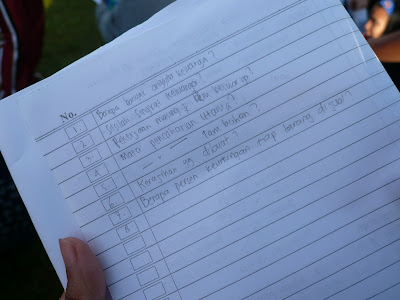 No.
1. Berapa banyak anggota keluarga?
2. Sekolah sampai
3. Pekerjaan masing2 keluarga?
4. Mata pencaharian utama?
5. " — " — tambahan?
6. Kerajinan yg dibuat?
7. Berapa persen keuntungan tiap barang dijual?
8.